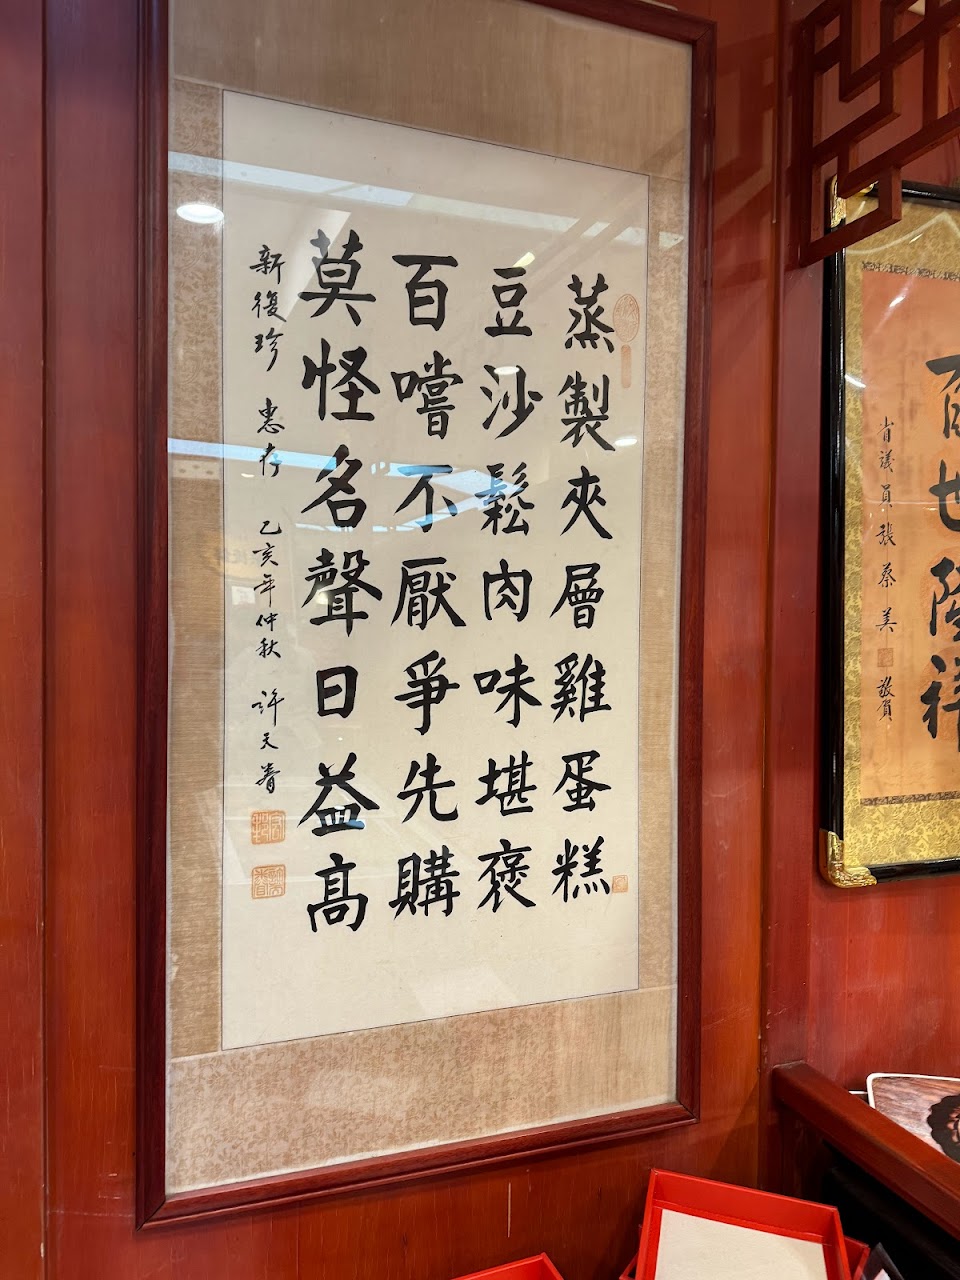 蒸製夾層雞蛋糕
豆沙鬆肉味堪褒
百嚐不厭爭先購
莫怪名聲日益高
新復珍 惠存 乙亥年仲秋 許天眷
百世隆祥
省議員張蔡美 敬賀